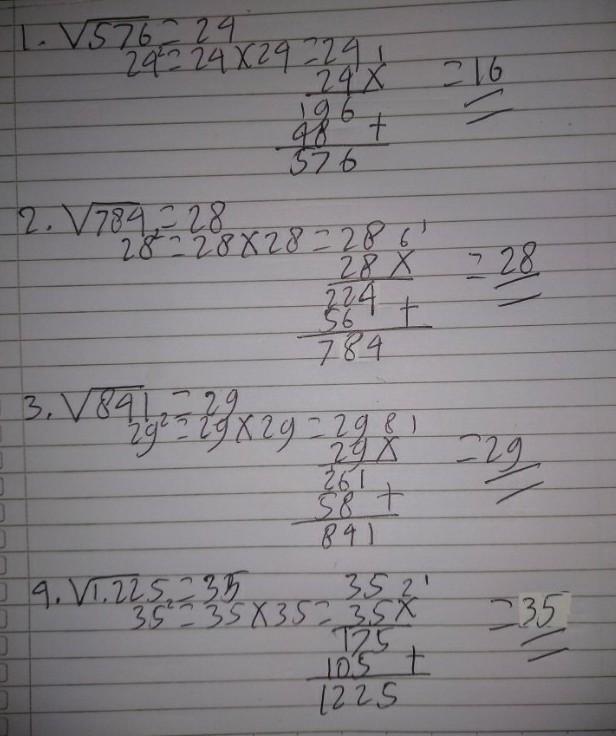 1. √576 = 24
24² = 24 × 24 = 24 1
24 × = 16
196
48 +
576
2. √784 = 28
28² = 28 × 28 = 28 6 1
28 × = 28
224
56 +
784
3. √841 = 29
29² = 29 × 29 = 29 8 1
29 × = 29
261
58 +
841
4. √1.225 = 35 35 2 1
35² = 35 × 35 = 35 × = 35
175
105 +
1225